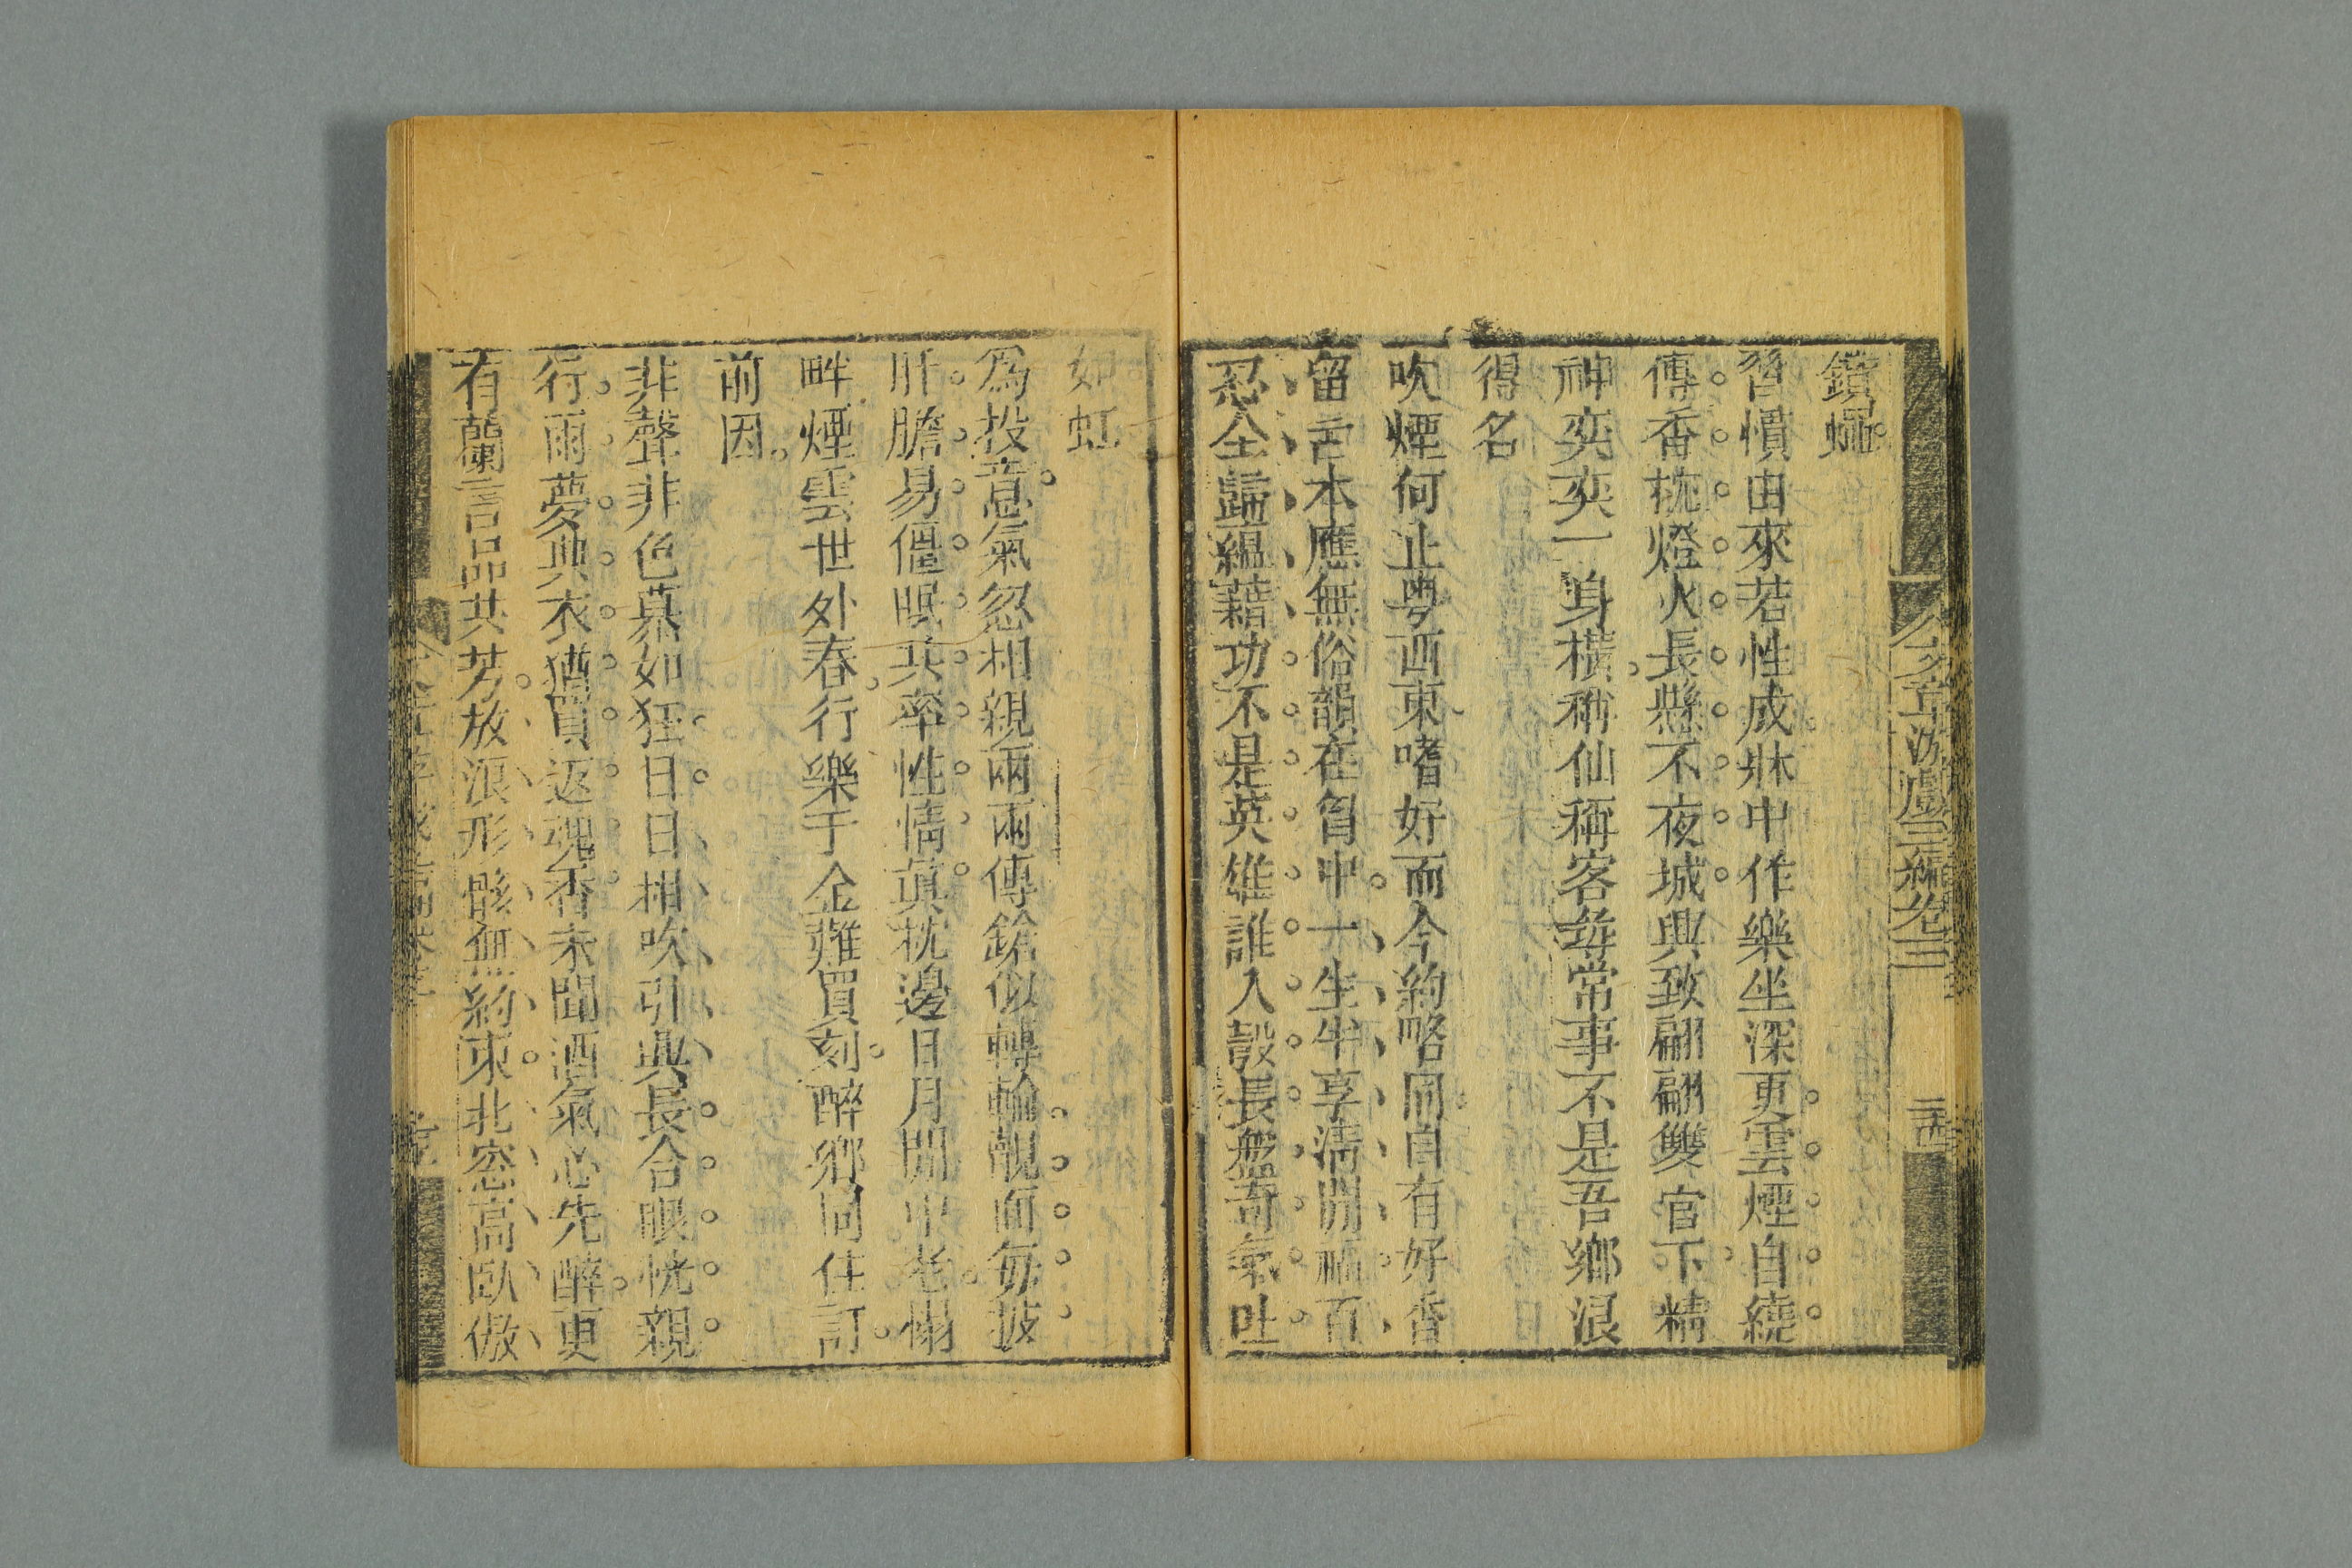 文章游戲三編卷三
鎖蠅
習慣由來若性成牀中作樂坐深更雲煙自繞
傳香枕燈火長懸不夜城興致翩翩雙官下精
神奕奕一身橫稱仙稱客尋常事不是吾鄉浪
得名
吹煙何止粤西東嗜好而今約略同自有好香
留舌本應無俗韻在胷中一生牛享淸閒福百
忍全歸緼藉功不是英雄誰入彀長盤奇氣吐
如虹
爲投意氣忽相親兩兩傳鎗似轉輪覿面每披
肝膽易僵眠共率性情眞枕邊日月閒中老榻
畔煙雲世外春行樂千金難買刻醉鄉同住訂
前因
非聲非色慕如狂日日相吹引興長合眼恍親
行雨夢典衣猶買返魂香未聞酒氣心先醉更
有蘭言品共芳放浪形骸無約束北窓高臥傲